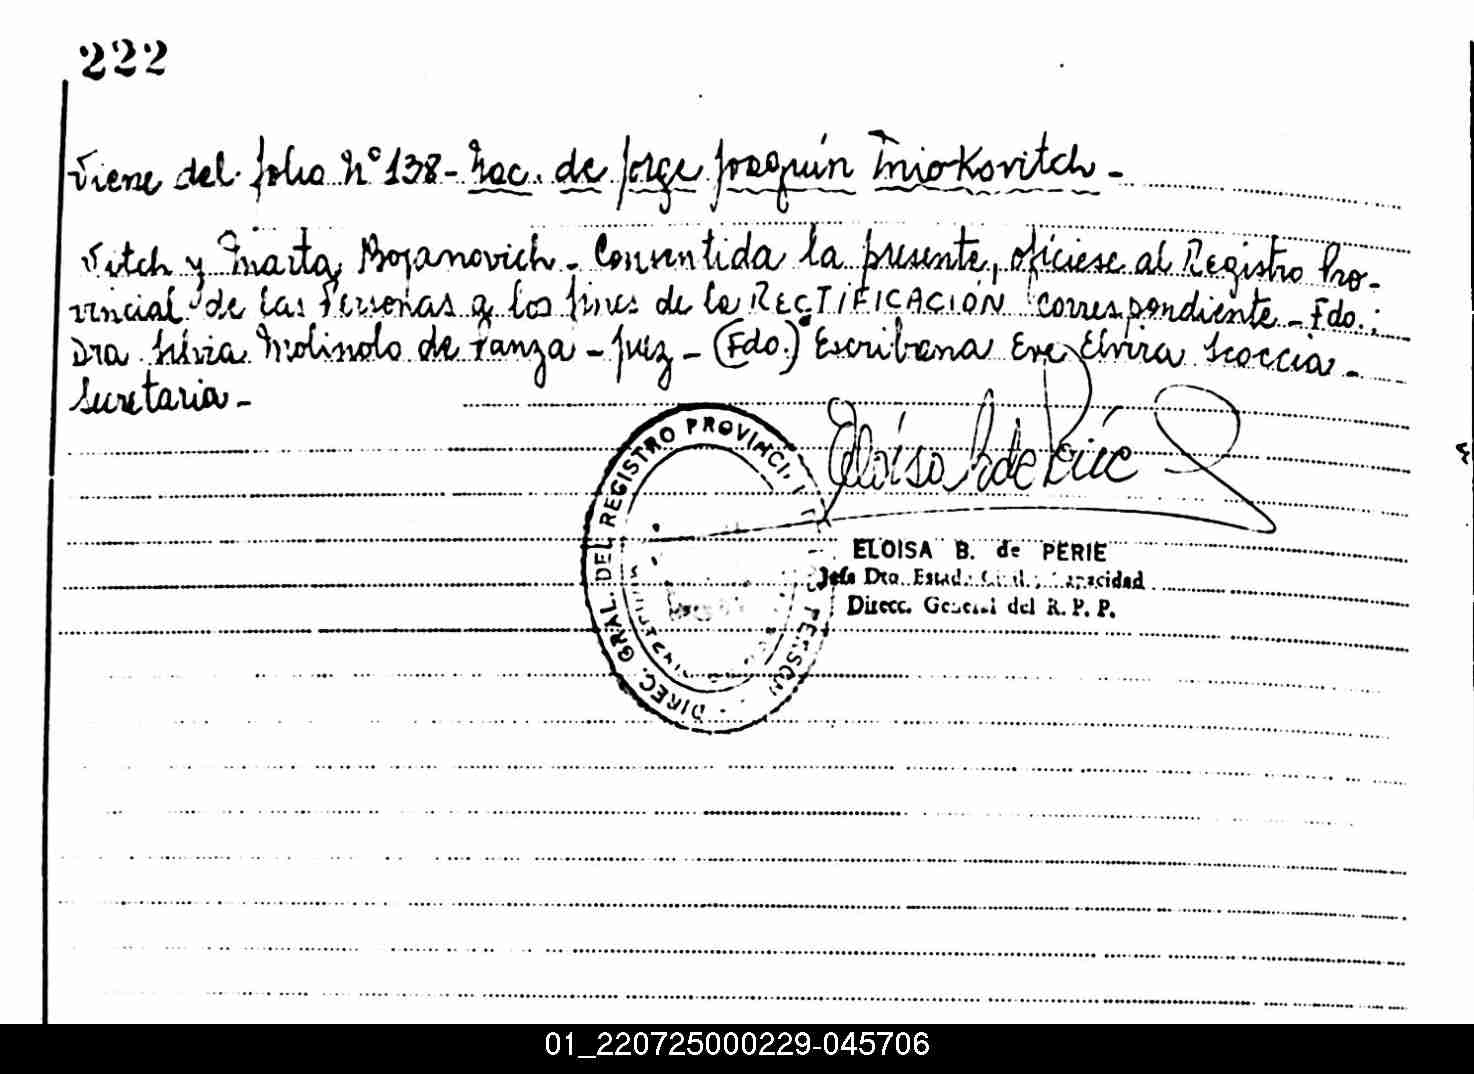 222
Viene del folio Nº 138 - Nac. de Jorge Joaquín Triokovitch -
vitch y Marta Bojanovich. Consentida la presente, ofíciese al Registro Pro-
vincial de las Personas a los fines de la RECTIFICACIÓN correspondiente - Fdo.:
Dra Silvia Molinolo de Panza - Juez - (Fdo.) Escribana Eve Elvira Scoccia -
Secretaria -
DIREC. GRAL. DEL REGISTRO
ELOISA B. de PERIE
Jefa Dto. Estado Civil y Capacidad
Direcc. General del R. P. P.
01_220725000229-045706